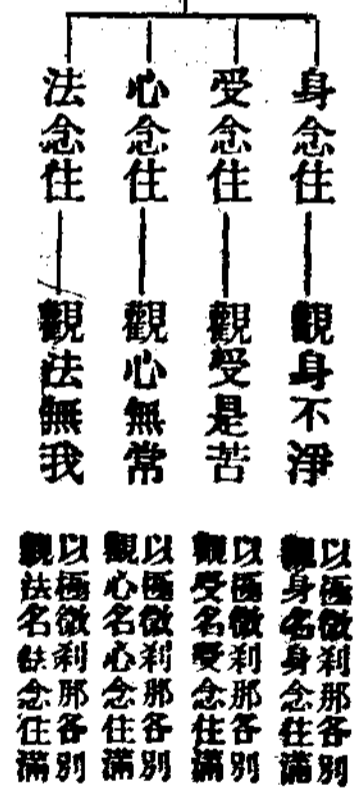 身念住
觀身不淨
以極微刹那各別
觀身名身念住滿
受念住
觀受是苦
以極微刹那各別
觀受名受念住滿
心念住
觀心無常
以極微刹那各別
觀心名心念住滿
法念住
觀法無我
以極微刹那各別
觀法名法念住滿